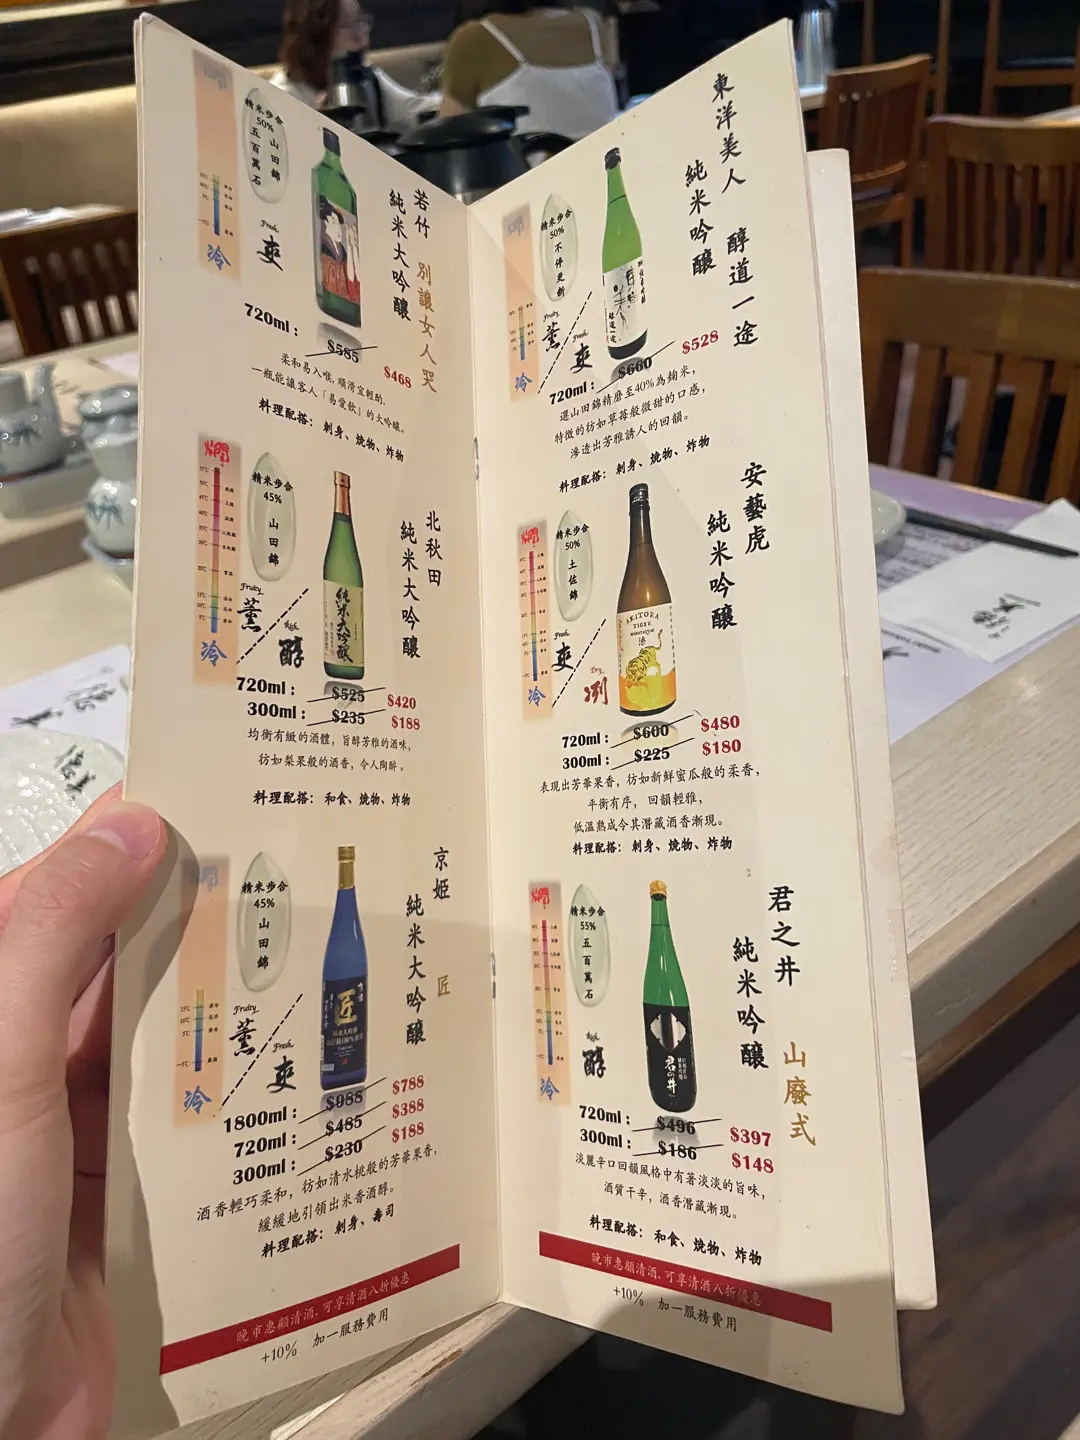 精米步合
50%
山田錦
五百萬石
Fresh
爽
冷
若竹 別讓女人哭
純米大吟釀
720ml :
$585
$468
柔和易入喉, 順滑宜輕酌,
一瓶能讓客人「易愛飲」的大吟釀。
料理配搭: 刺身、燒物、炸物
燗
精米步合
45%
山田錦
Fruity
薰
Rich
醇
冷
北秋田
純米大吟釀
純米大吟釀
720ml :
$525
$420
300ml :
$235
$188
均衡有緻的酒體, 旨醇芳雅的酒味,
彷如梨果般的酒香, 令人陶醉。
料理配搭: 和食、燒物、炸物
精米步合
45%
山田錦
Fruity
薰
Fresh
爽
冷
京姬 匠
純米大吟釀
匠
1800ml :
$988
$788
720ml :
$485
$388
300ml :
$230
$188
酒香輕巧柔和, 彷如清水桃般的芳華果香,
緩緩地引領出米香酒醇。
料理配搭: 刺身、壽司
晚市惠顧清酒, 可享清酒八折優惠
+10% 加一服務費用
東洋美人 醇道一途
純米吟釀
精米步合
50%
不停更新
Fruity
薰
Fresh
爽
冷
720ml :
$660
$528
選山田錦精磨至40%為麴米,
特徵的彷如草莓般微甜的口感,
滲透出芳雅誘人的回韻。
料理配搭: 刺身、燒物、炸物
燗
精米步合
50%
土佐錦
Fresh
爽
Dry
冽
冷
安藝虎
純米吟釀
AKITORA
TIGER
720ml :
$600
$480
300ml :
$225
$180
表現出芳華果香, 彷如新鮮蜜瓜般的柔香,
平衡有序, 回韻輕雅,
低溫熟成令其潛藏酒香漸現。
料理配搭: 刺身、燒物、炸物
燗
精米步合
55%
五百萬石
Rich
醇
冷
君之井 山廢式
純米吟釀
君の井
720ml :
$496
$397
300ml :
$186
$148
淡麗辛口回韻風格中有著淡淡的旨味,
酒質干辛, 酒香潛藏漸現。
料理配搭: 和食、燒物、炸物
晚市惠顧清酒, 可享清酒八折優惠
+10% 加一服務費用